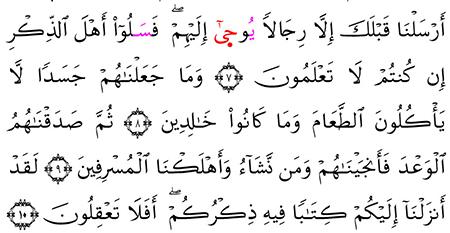 أَرْسَلْنَا قَبْلَكَ إِلَّا رِجَالاً يُوحِىٓ إِلَيْهِمْۖ فَسَلُوٓاْ أَهْلَ اَ۬لذِّكْرِ
إِن كُنتُمْ لَا تَعْلَمُونَۖ ۝٧ وَمَا جَعَلْنَٰهُمْ جَسَدٗا لَّا
يَأْكُلُونَ اَ۬لطَّعَامَ وَمَا كَانُواْ خَٰلِدِينَۖ ۝٨ ثُمَّ صَدَقْنَٰهُمُ
اُ۬لْوَعْدَ فَأَنجَيْنَٰهُمْ وَمَن نَّشَآءُ وَأَهْلَكْنَا اَ۬لْمُسْرِفِينَۖ ۝٩ لَقَدْ
أَنزَلْنَآ إِلَيْكُمْ كِتَٰباٗ فِيهِ ذِكْرُكُمْۖ أَفَلَا تَعْقِلُونَۖ ۝١٠